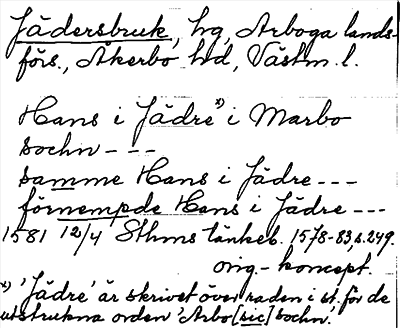 Jädersbruk, hg, Arboga lands-
förs., Åkerbo hd, Västm. l.
Hans i Jädre x) i Marbo
sochn - - -
samme Hans i Jädre - - -
förnempde Hans i Jädre - - -
1581 12/4 Sthms tänkeb. 1578-83, s. 249.
orig.-koncept.
x) 'Jädre' är skrivet över raden i st. för de
utstrukna orden 'Arbo [sic] sochn'.